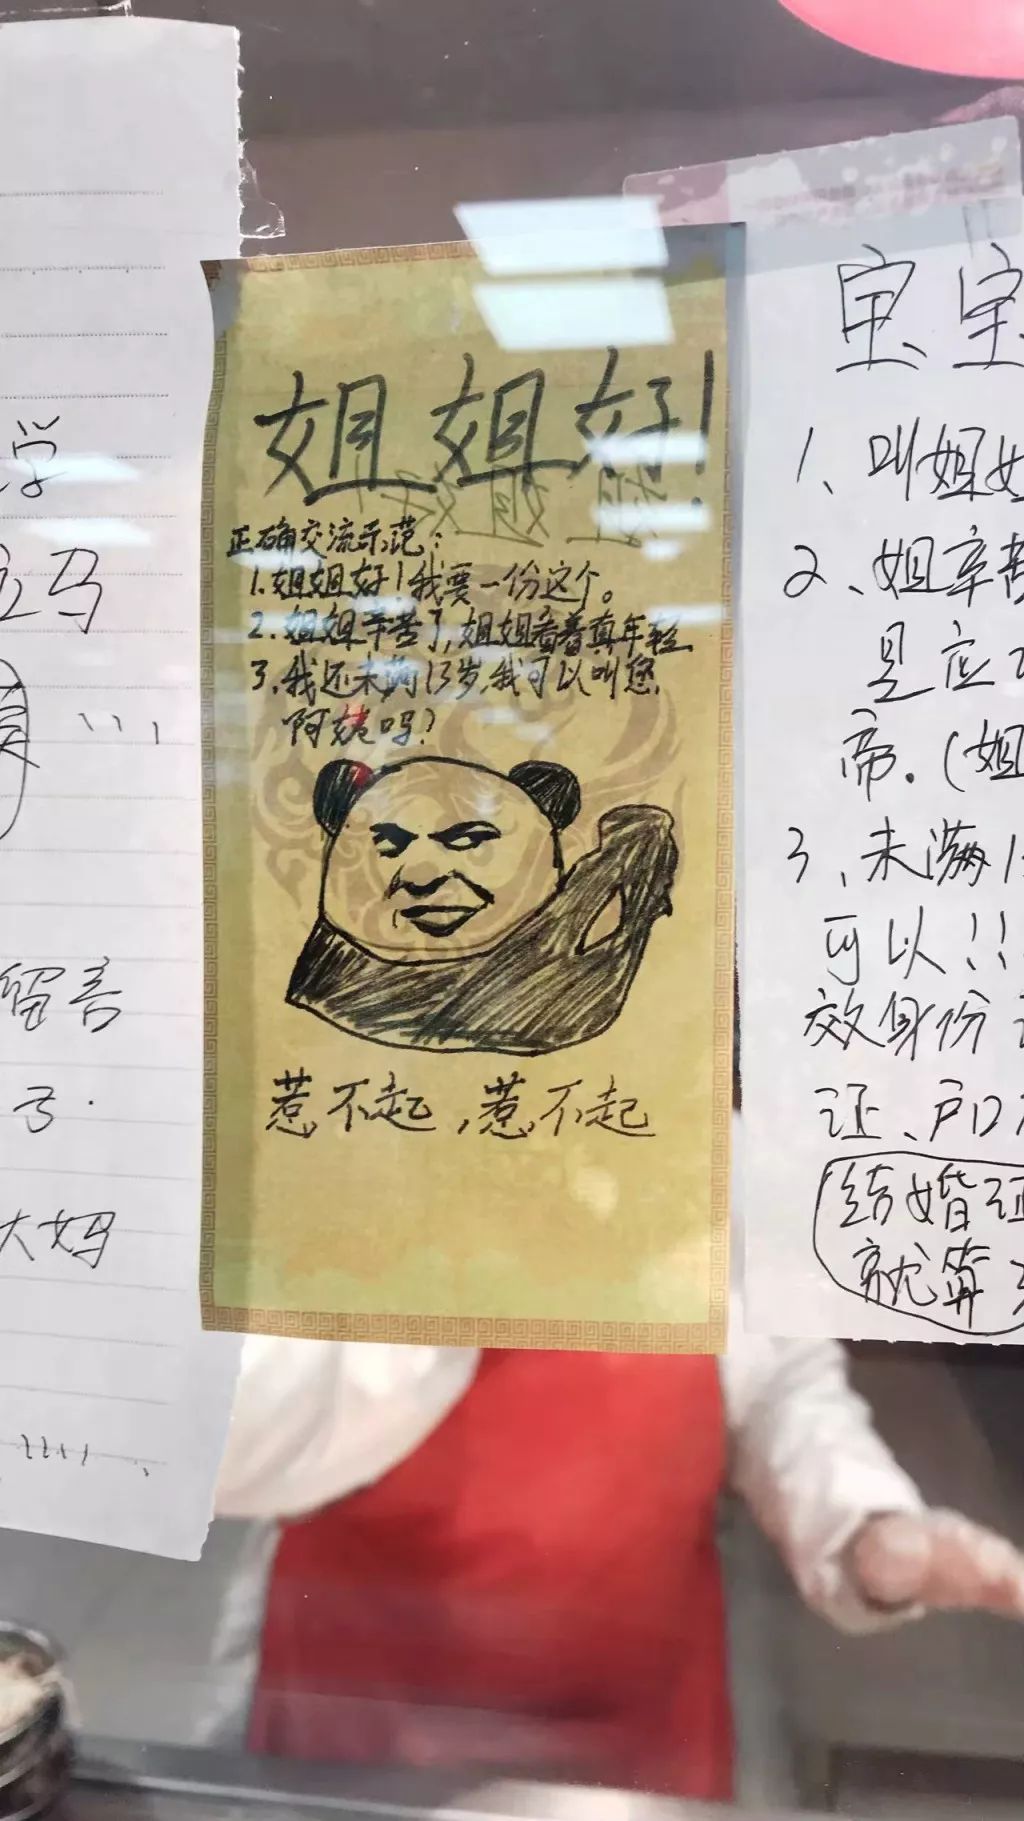 学
马
留言
大妈
姐姐好!
正确交流示范:
1.姐姐好!我要一份这个。
2.姐姐辛苦了,姐姐看着真年轻
3.我还未满13岁,我可以叫您
阿姨吗?
惹不起,惹不起
宝宝
1、叫姐
2、姐辛苦
是应
帝.(姐
3、未满1
可以!!
效身份
证、户口
结婚证
就算